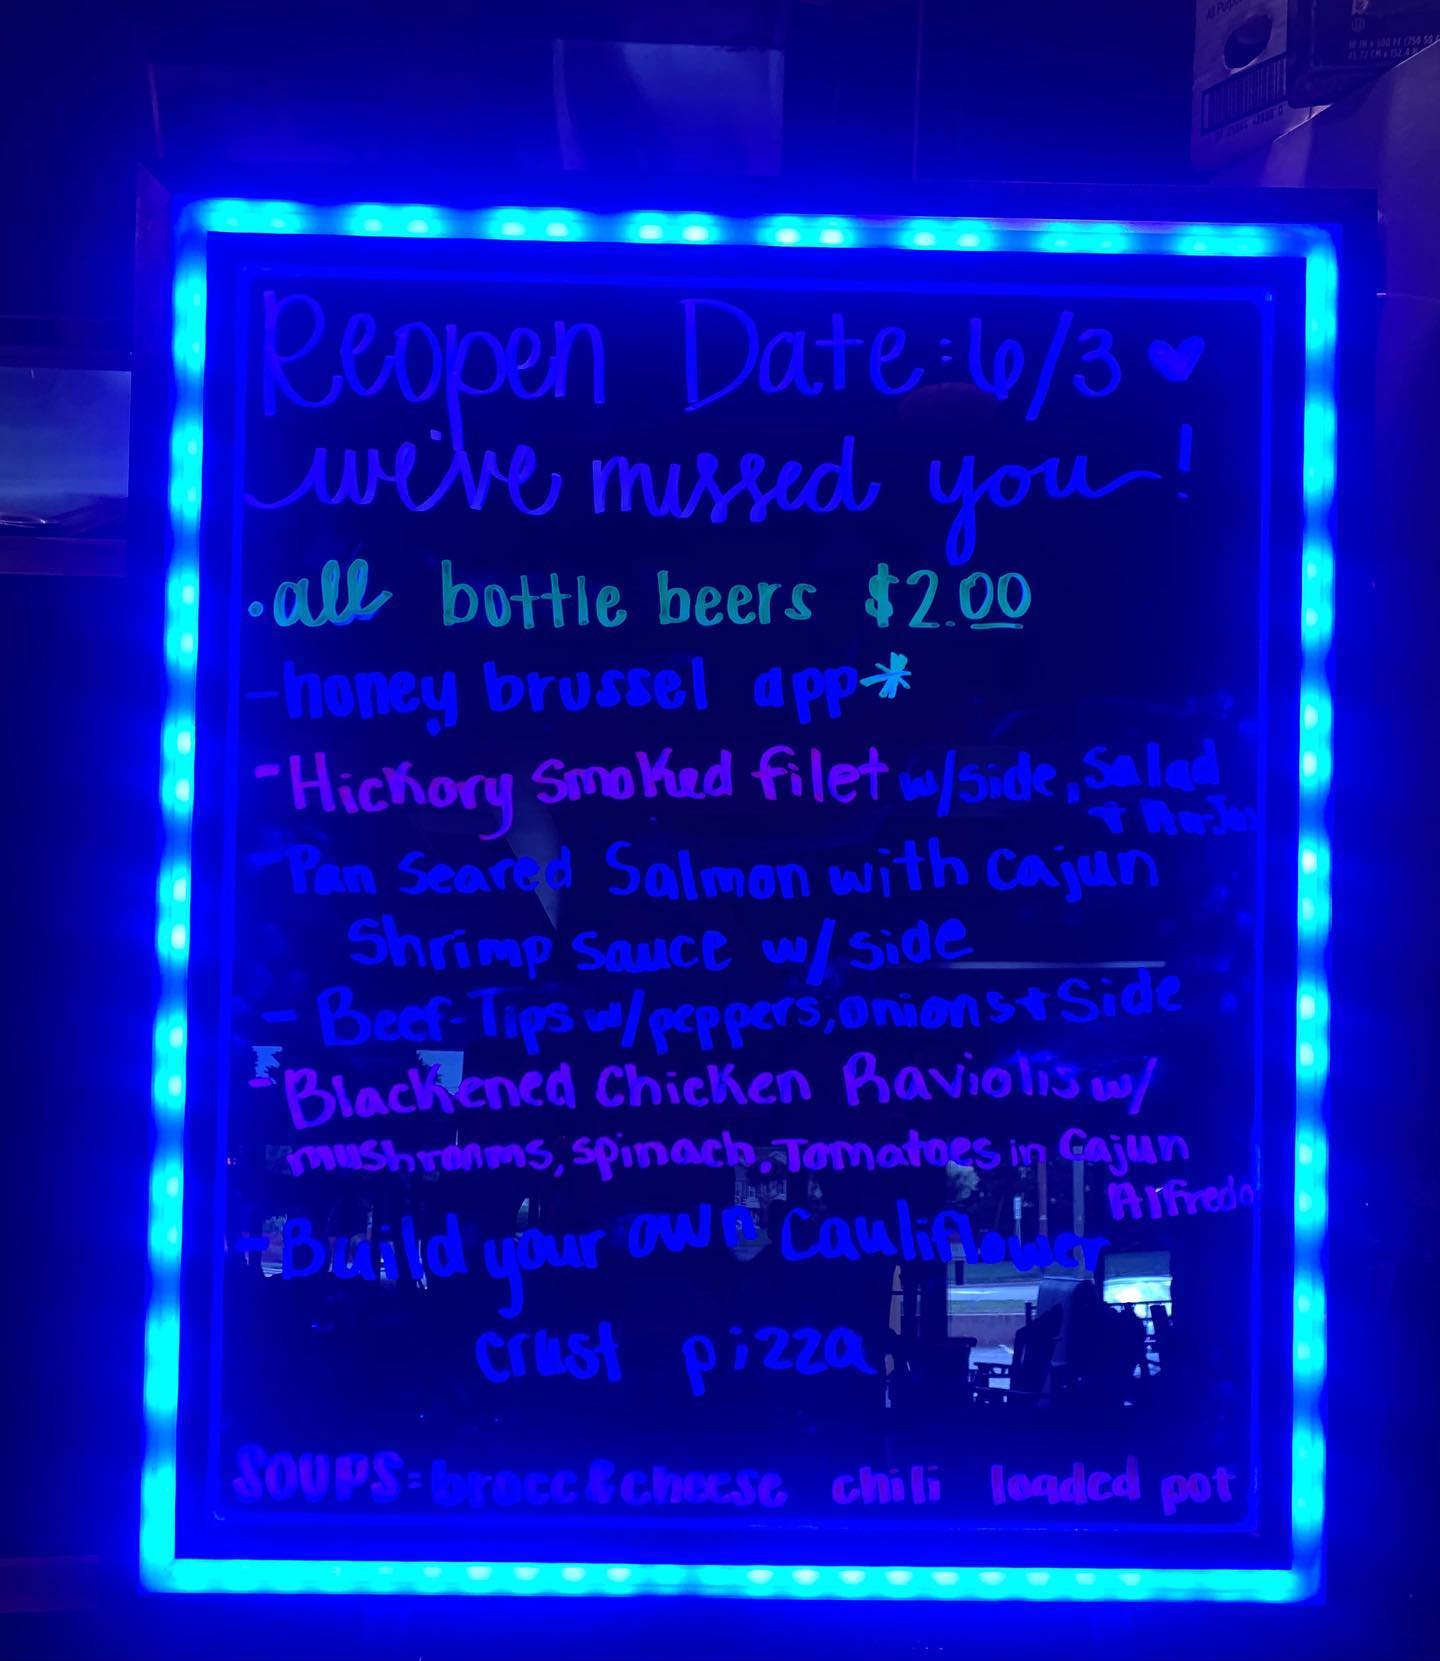 Reopen Date: 6/3 ♥
we've missed you!
• all bottle beers $2.00
- honey brussel app*
- Hickory Smoked filet w/side, Salad
+ Au-Jus
- Pan Seared Salmon with Cajun
Shrimp Sauce w/ side
- Beef-Tips w/peppers, onions + Side
- Blackened Chicken Raviolis w/
mushrooms, spinach, Tomatoes in Cajun
Alfredo
- Build your own Cauliflower
crust pizza
SOUPS= brocc & cheese chili loaded pot